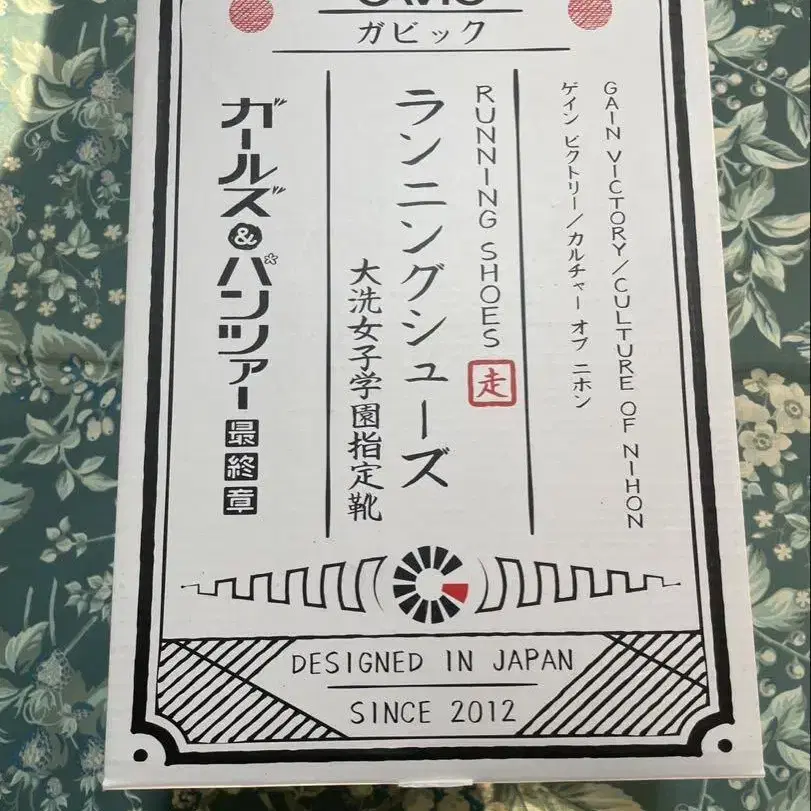 ガビック
GAIN VICTORY/CULTURE OF NIHON
ゲイン ビクトリー/カルチャー オブ ニホン
RUNNING SHOES 走
ランニングシューズ
大洗女子学園指定靴
ガールズ&パンツァー 最終章
DESIGNED IN JAPAN
SINCE 2012